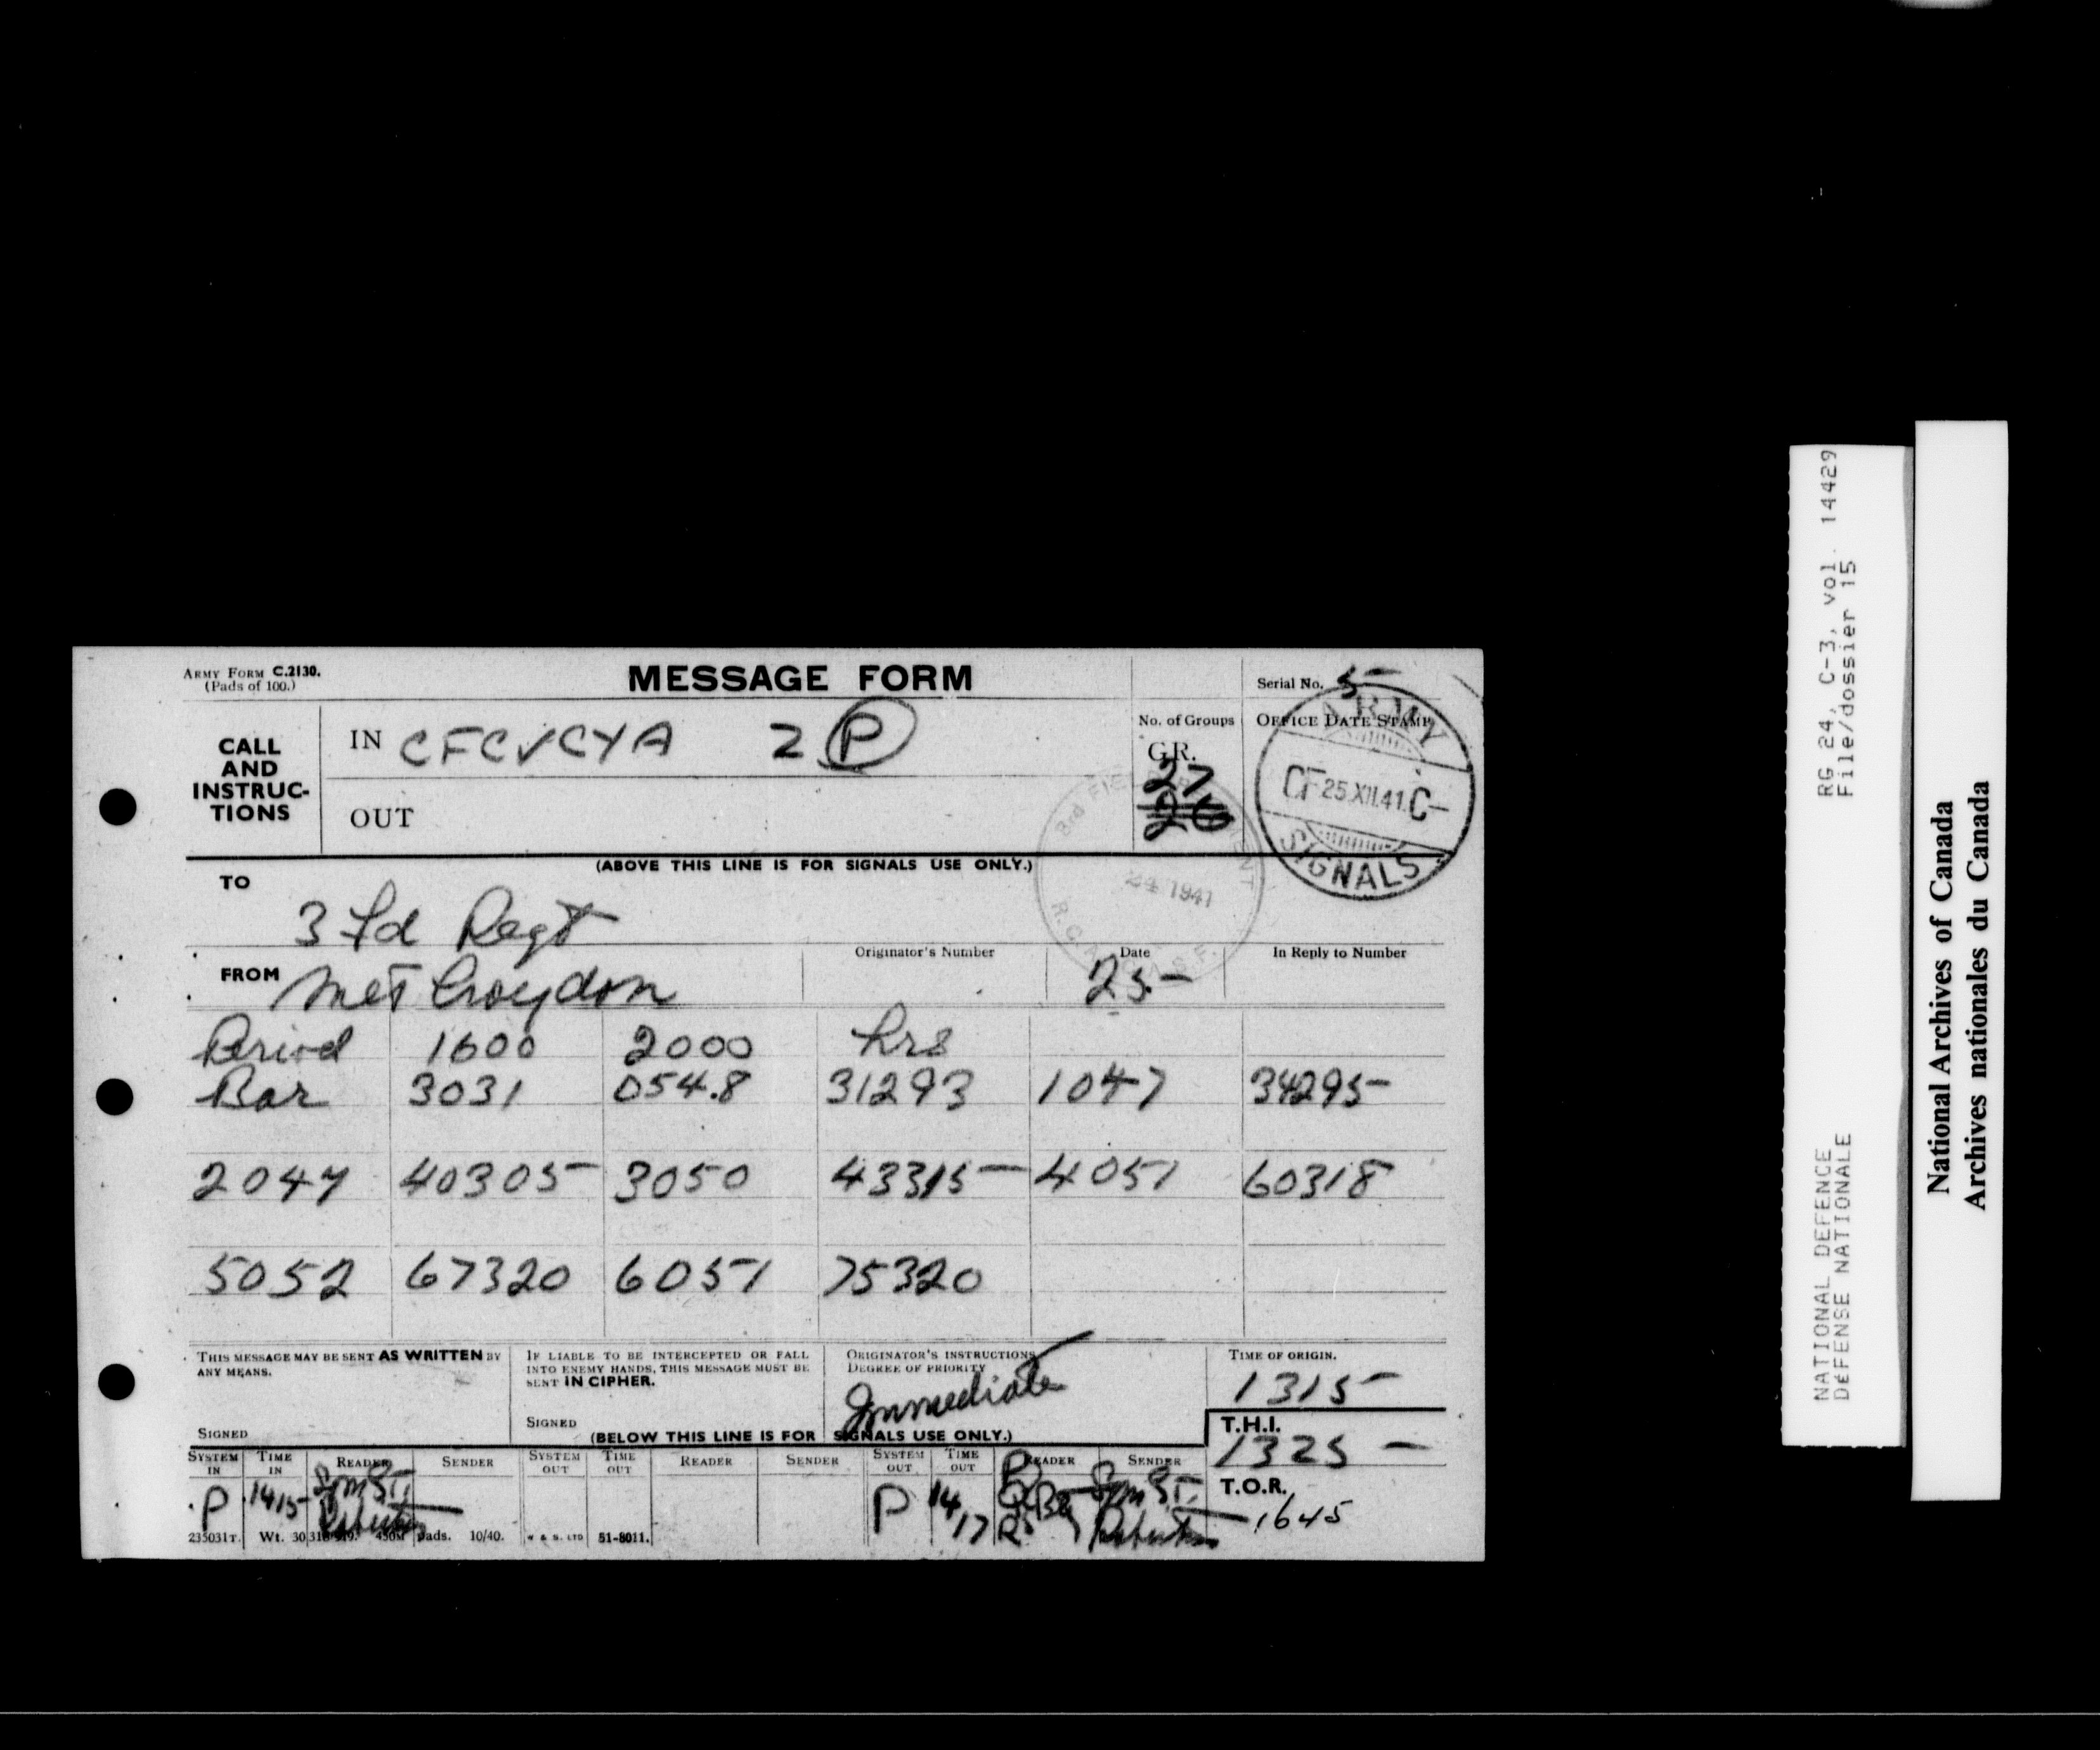 ARMY FORM C.2130.
(Pads of 100.)
MESSAGE FORM
Serial No. 5
CALL AND INSTRUC-TIONS
IN CFCVCYA 2 P
OUT
No. of Groups
GR.
27
26
OFFICE DATE STAMP
ARMY
CF 25.XII.41.C-
SIGNALS
3rd FIELD REGIMENT
24 1941
(ABOVE THIS LINE IS FOR SIGNALS USE ONLY.)
TO
3 Fd Regt
FROM Met Croydon
Originator's Number
Date
25
In Reply to Number
Period 1600 2000 hrs
Bar 3031 054.8 31293 1047 34295
2047 40305 3050 43315 4051 60318
5052 67320 6051 75320
THIS MESSAGE MAY BE SENT AS WRITTEN BY
ANY MEANS.
SIGNED
IF LIABLE TO BE INTERCEPTED OR FALL
INTO ENEMY HANDS, THIS MESSAGE MUST BE
SENT IN CIPHER.
SIGNED
ORIGINATOR'S INSTRUCTIONS
DEGREE OF PRIORITY
Immediate
TIME OF ORIGIN.
1315
(BELOW THIS LINE IS FOR SIGNALS USE ONLY.)
T.H.I.
1325
T.O.R.
1645
SYSTEM IN TIME IN READER SENDER SYSTEM OUT TIME OUT READER SENDER SYSTEM OUT TIME OUT READER SENDER
P 1415 P 14 17
235031T. Wt. 30 pads. 10/40. W & S. LTD 51-8011.
RG 24, C-3, vol. 14429
File/dossier 15
NATIONAL DEFENCE
DÉFENSE NATIONALE
National Archives of Canada
Archives nationales du Canada